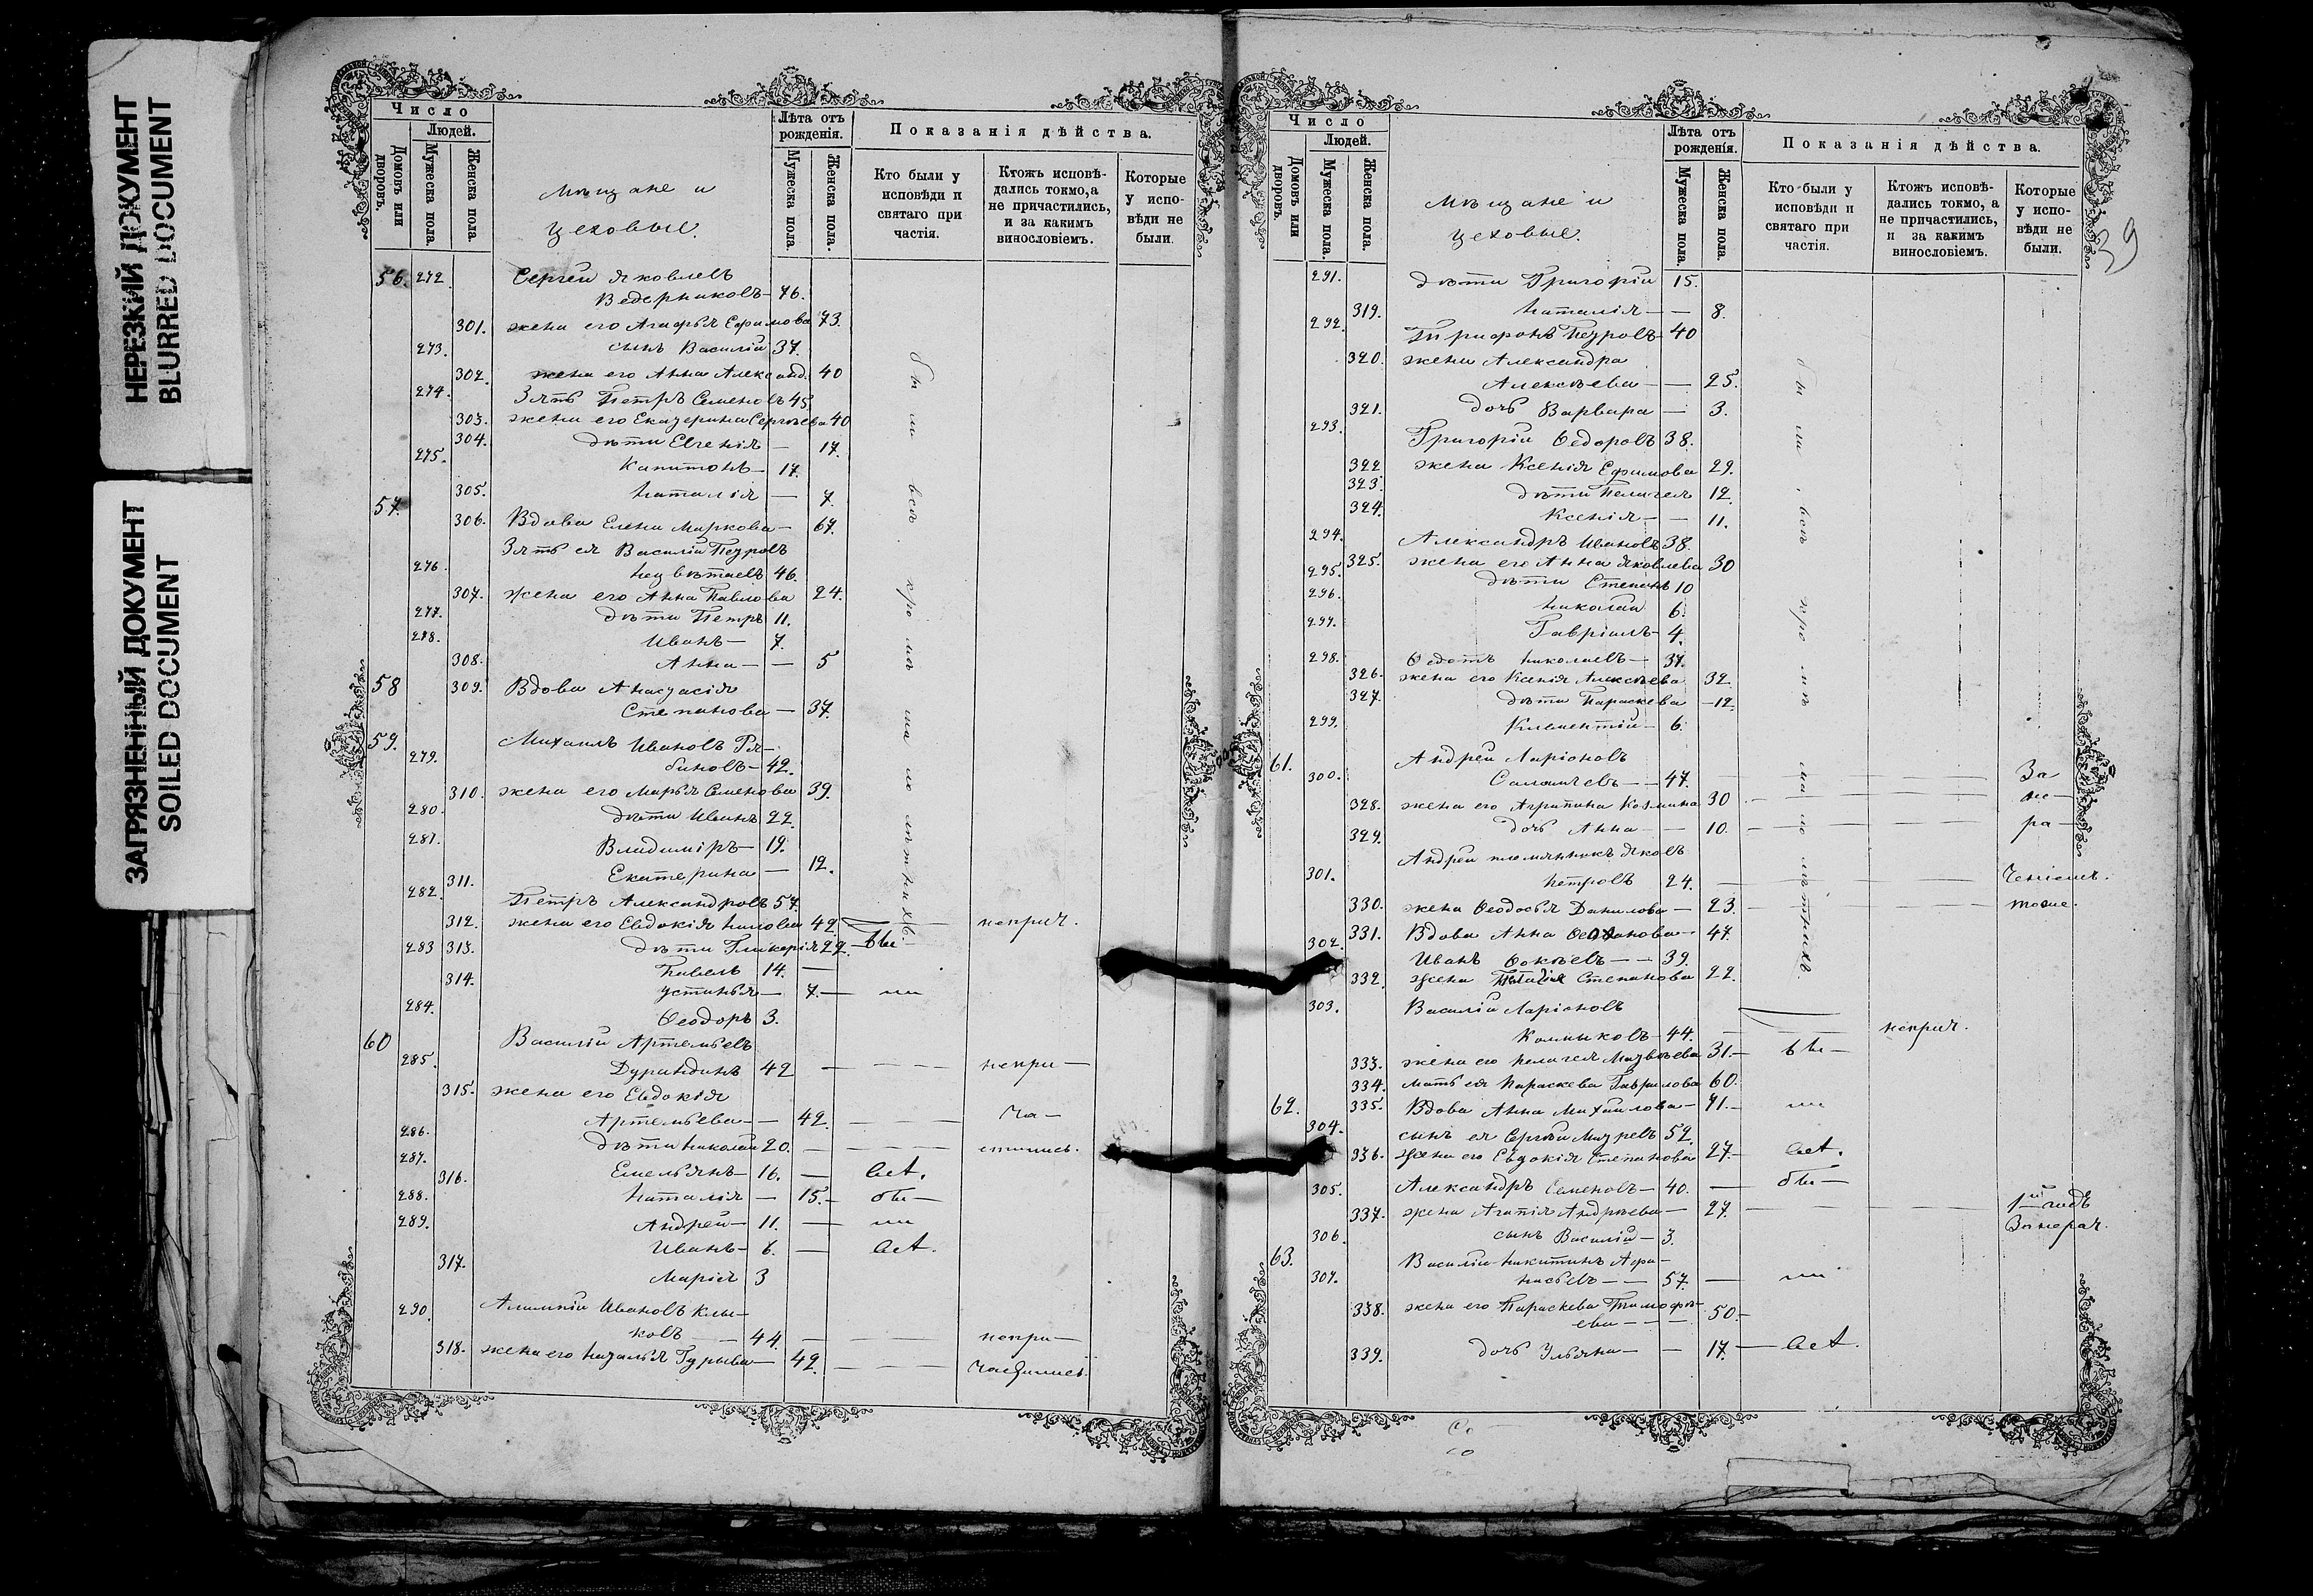 НЕРЕЗКИЙ ДОКУМЕНТ
BLURRED DOCUMENT
ЗАГРЯЗНЕННЫЙ ДОКУМЕНТ
SOILED DOCUMENT
Число
Людей.
Домовъ или дворовъ.
Мужеска пола.
Женска пола.
Мѣщане и
цеховые.
Лѣта отъ рожденія.
Мужеска пола.
Женска пола.
Показанія дѣйства.
Кто были у исповѣди и святаго при частія.
Ктожъ исповѣ-дались токмо, а не причастились, и за какимъ винословіемъ.
Которые у испо-вѣди не были.
56. 272. Сергѣй Яковлевъ
Ведерниковъ 76.
301. жена его Агафья Ефимова 73.
273. сынъ Василій 37.
302. жена его Анна Александ. 40
274. Зять Петръ Семеновъ 45
303. жена его Екатерина Сергѣева 40
304. дѣти Евгенія — 17.
275. Капитонъ — 17.
305. Наталія — 7.
57.
306. Вдова Елена Маркова — 67.
Зять ея Василій Петровъ
276. 46.
307. жена его Анна Павлова 24.
277. дѣти Петръ 11.
278. Иванъ — 7.
308. Анна — — 5
58 309. Вдова Анастасія
Степанова — 37.
59. Михаилъ Ивановъ Ря-
279. биновъ — 42.
310. жена его Марья Семенова 39.
280. дѣти Иванъ 22.
281. Владиміръ — 19.
311. Екатерина — 12.
282. Петръ Александровъ 57.
312. жена его Евдокія 42. — неприч.
283 313. дѣти Гликерія 22. — бы
Павелъ 14. —
314. Устинья — 7. — ли
284. Ѳеодоръ 3.
60 Василій Артемьевъ
285. Дурандинъ 42 — — — — непри —
315. жена его Евдокія
Артемьева — — 42. — — — ча —
286. дѣти Николай 20. — — — стились.
287. Емельянъ — 16. — всѣ.
316. Наталія — 15. — бы —
288. Андрей — 11. — ли
289. Иванъ — 6. — всѣ.
317. Марія 3
290. Алимпій Ивановъ Клы-
ковъ — 44. — — непри —
318. жена его Наталья Гурьева — 42. — — частились.
были всѣ кромѣ малолѣтнихъ.
Число
Людей.
Домовъ или дворовъ.
Мужеска пола.
Женска пола.
Мѣщане и
цеховые.
Лѣта отъ рожденія.
Мужеска пола.
Женска пола.
Показанія дѣйства.
Кто были у исповѣди и святаго при частія.
Ктожъ исповѣ-дались токмо, а не причастились, и за какимъ винословіемъ.
Которые у испо-вѣди не были.
39
291. дѣти Григорій 15.
319. Наталія — — 8.
292. Трифонъ Петровъ 40
320. жена Александра
Алексѣева — — 25.
321. дочь Варвара — 3.
293. Григорій Ѳедоровъ 38.
322 жена Ксенія Ефимова 29.
323. дѣти Пелагея 12.
324. Ксенія — — 11.
294. Александръ Ивановъ 38.
325. жена его Анна Яковлева 30
295. дѣти Степанъ 10
296. Николай 6.
297. Гавріилъ — 4.
298. Ѳедотъ Николаевъ — 37.
326. жена его Ксенія Алексѣева 32.
327. дѣти Параскева — 12.
299. Климентій — 6.
61. Андрей Ларіоновъ
300. 47. — — — — За
328. жена его Агрипина Козмина 30 — — — — не —
329. дочь Анна — — 10. — — — — ра —
Андрей племянникъ Яковъ
301. Петровъ 24. — — — — ченіемъ.
330. жена Ѳеодосья Данилова — 23. — — — — тоже.
331. Вдова Анна 47.
302. Иванъ Фокѣевъ — — 39.
332. жена Степанова 22.
303. Василій Ларіоновъ
Колмыковъ — 44. — — неприч.
333. жена его Пелагея Матвѣева 31. — бы —
334. мать ея Параскева Гаврилова 60.
62. 335. Вдова Анна Михайлова — 71. — ли
304. сынъ ея Сергѣй 52.
336. жена его Евдокія Степанова 27. — всѣ.
305. Александръ Семеновъ — 40. — бы —
337. жена Агапія Андреева — 27. — — — 1й годъ
306. сынъ Василій — 3. Занерач.
63. Василій Никитинъ Афа-
307. насьевъ — — 57. — ли
338. жена его Параскева Тимофѣ-
ева — — — 50. —
339. дочь Ульяна — — 17. — всѣ.
были всѣ кромѣ малолѣтнихъ.